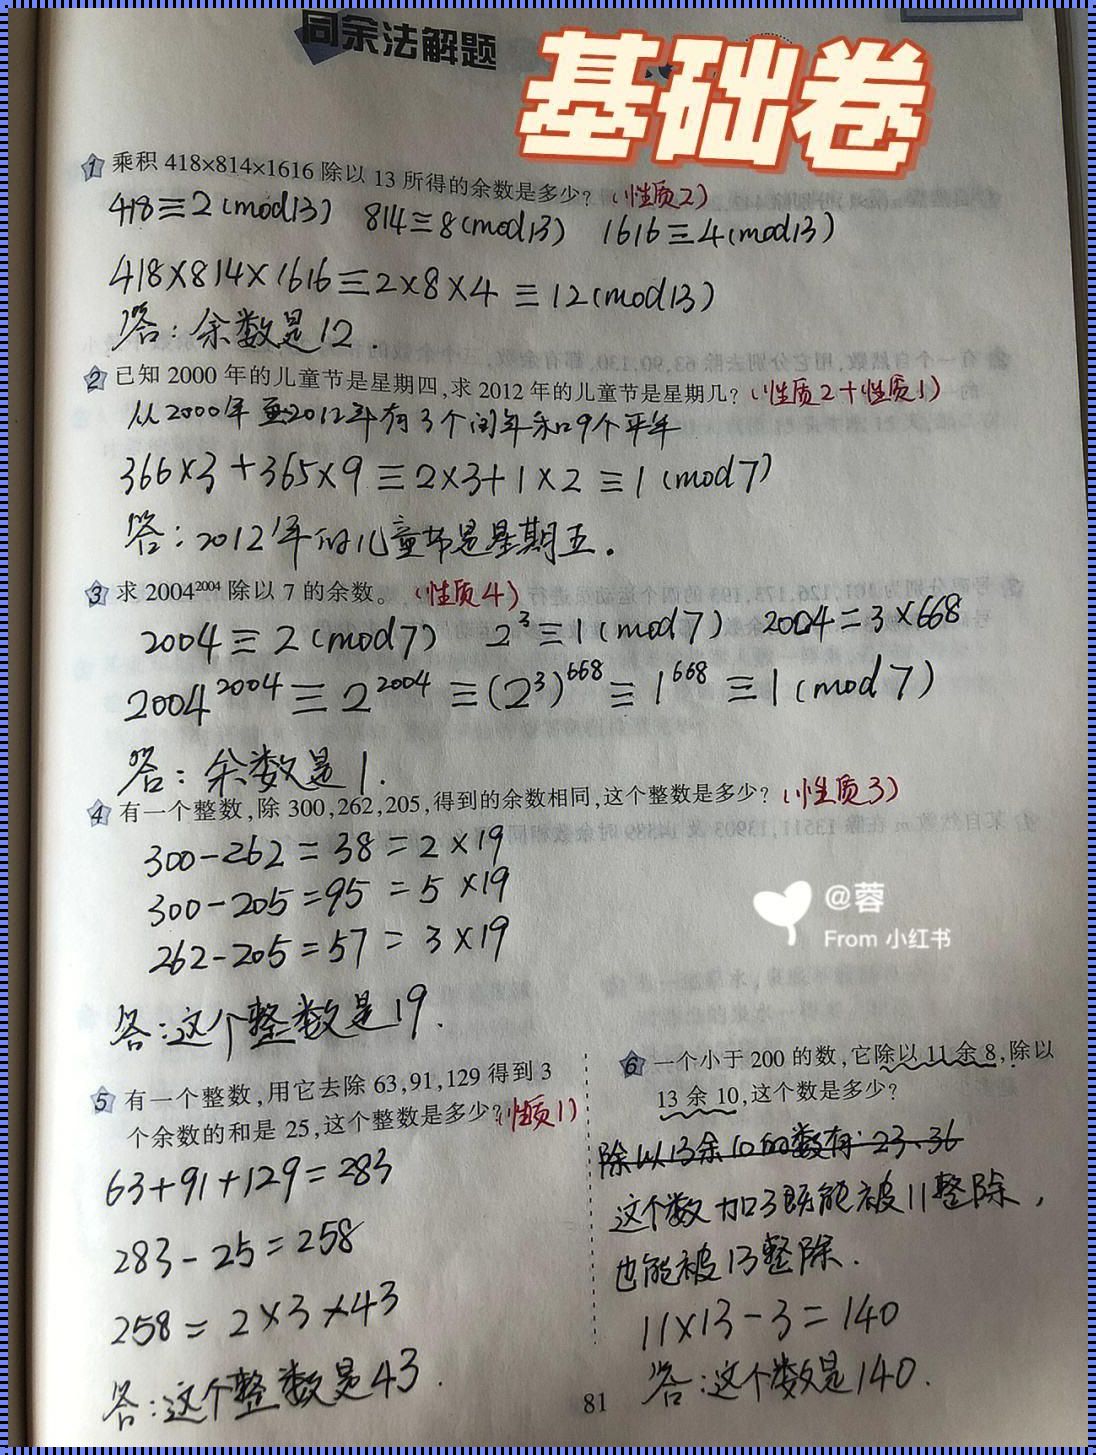 同余法解题
基础卷
1 乘积 418×814×1616 除以 13 所得的余数是多少?(性质2)
418≡2(mod13) 814≡8(mod13) 1616≡4(mod13)
418×814×1616≡2×8×4≡12(mod13)
答:余数是12.
2 已知 2000 年的儿童节是星期四,求 2012 年的儿童节是星期几?(性质2+性质1)
从2000年至2012年有3个闰年和9个平年
366×3+365×9≡2×3+1×2≡1(mod7)
答:2012年的儿童节是星期五.
3 求 2004²⁰⁰⁴ 除以 7 的余数。(性质4)
2004≡2(mod7) 2³≡1(mod7) 2004=3×668
2004²⁰⁰⁴≡2²⁰⁰⁴≡(2³)⁶⁶⁸≡1⁶⁶⁸≡1(mod7)
答:余数是1.
4 有一个整数,除 300,262,205,得到的余数相同,这个整数是多少?(性质3)
300-262=38=2×19
300-205=95=5×19
262-205=57=3×19
@蓉
From 小红书
答:这个整数是19.
5 有一个整数,用它去除 63,91,129 得到 3
个余数的和是 25,这个整数是多少?(性质1)
63+91+129=283
283-25=258
258=2×3×43
答:这个整数是43.
6 一个小于 200 的数,它除以 11 余 8,除以
13 余 10,这个数是多少?
除以13余10的数有:23、36
这个数加3既能被11整除,
也能被13整除.
11×13-3=140
答:这个数是140.
81